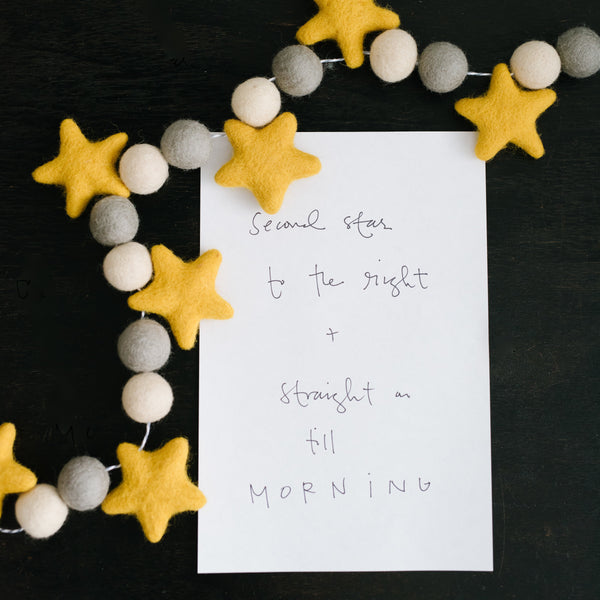 second star
to the right
+
straight on
till
MORNiNG